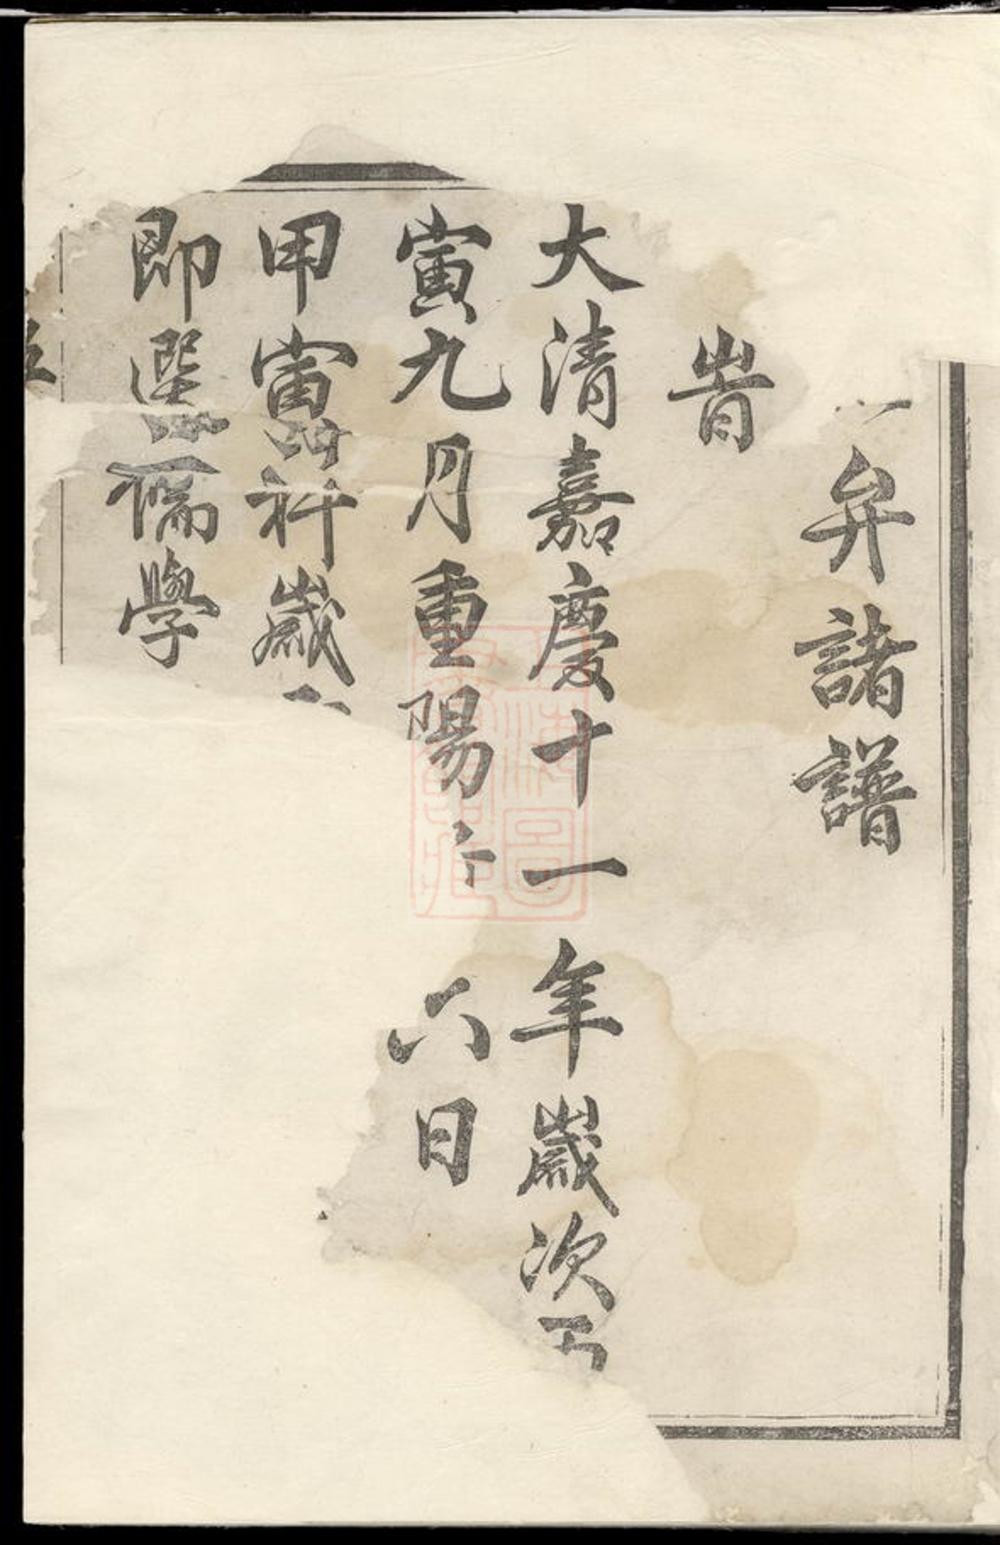 弁諸譜
旹
大清嘉慶十一年歲次丙
寅九月重陽六日
甲寅科歲
即選儒學